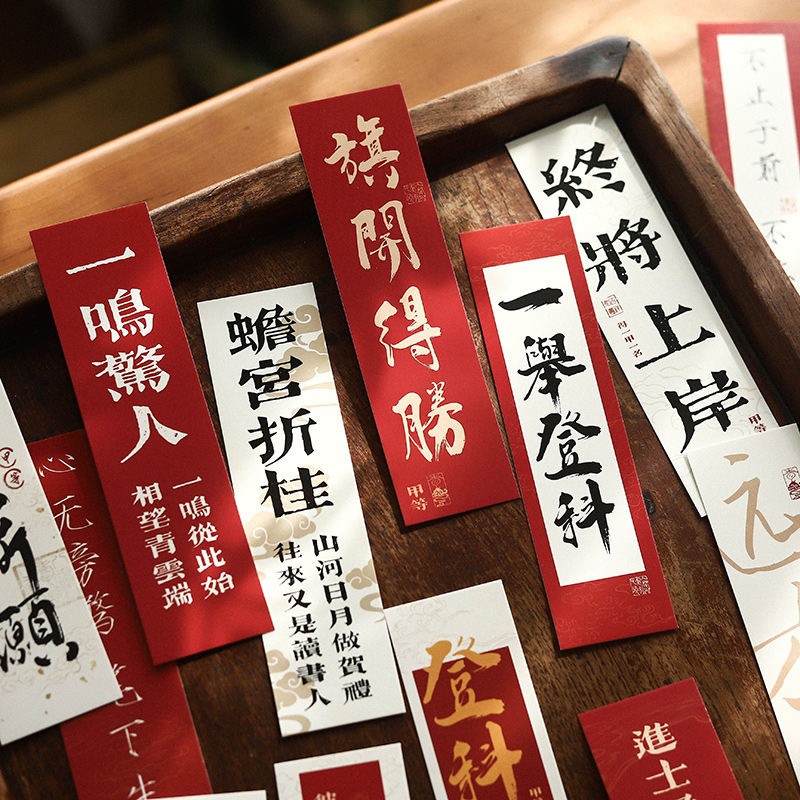 一鳴驚人
一鳴從此始
相望青雲端
蟾宮折桂
山河日月做賀禮
往來又是讀書人
旗開得勝
甲等
一舉登科
終將上岸
得一甲一名
甲等
不止于所
不
甲等
所願
心无旁骛
笔下生
登科
甲
進士